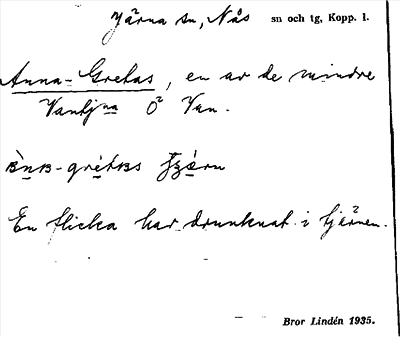 Järna sn, Nås sn och tg, Kopp. l.
Anna-Gretas, en av de mindre
Vantjna Ö Van.
En flicka har drunknat i tjärnen.
Bror Lindén 1935.